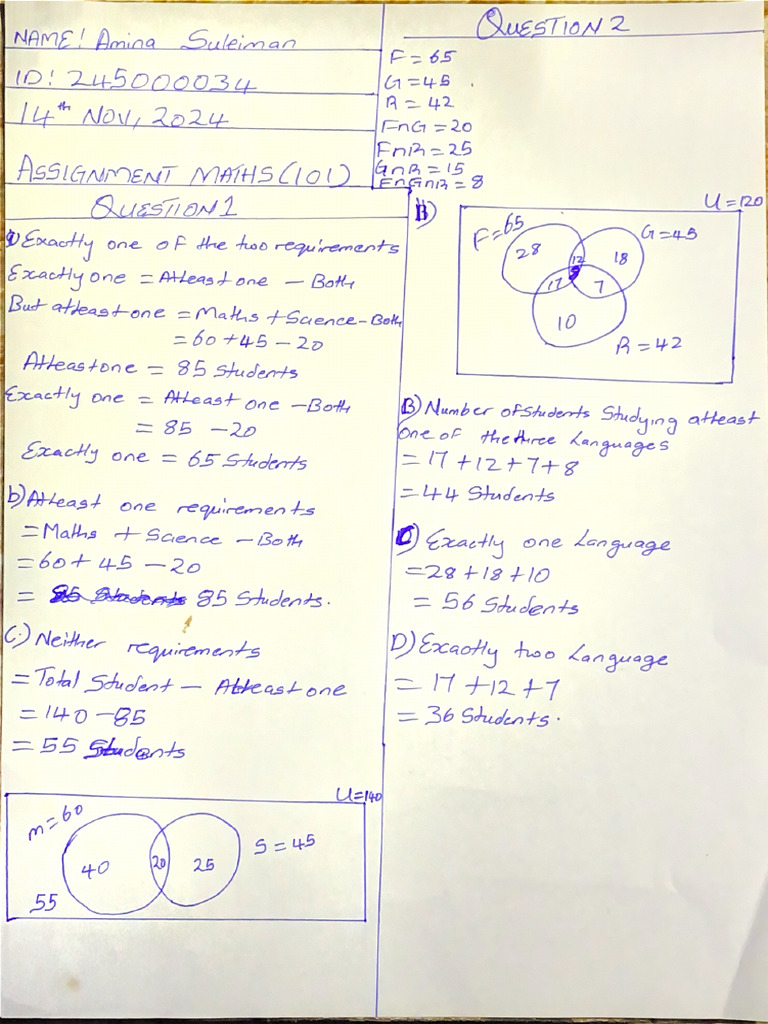 NAME! Amina Suleiman
ID! 245000034
14th NOV, 2024
ASSIGNMENT MATHS(101)
QUESTION 1
a) Exactly one of the two requirements
Exactly one = Atleast one - Both
But atleast one = Maths + Science - Both
= 60 + 45 - 20
Atleast one = 85 Students
Exactly one = Atleast one - Both
= 85 - 20
Exactly one = 65 Students
b) Atleast one requirements
= Maths + Science - Both
= 60 + 45 - 20
= 85 Students 85 Students.
C.) Neither requirements
= Total Student - Atleast one
= 140 - 85
= 55 Students
U = 140
m = 60
S = 45
40 20 25
55
QUESTION 2
F = 65
G = 45
R = 42
FnG = 20
FnR = 25
GnR = 15
FnGnR = 8
B)
U = 120
F = 65
G = 45
28 12 18
17 8 7
10
R = 42
B) Number of Students Studying atleast
one of the three Languages
= 17 + 12 + 7 + 8
= 44 Students
C) Exactly one Language
= 28 + 18 + 10
= 56 Students
D) Exactly two Language
= 17 + 12 + 7
= 36 Students.